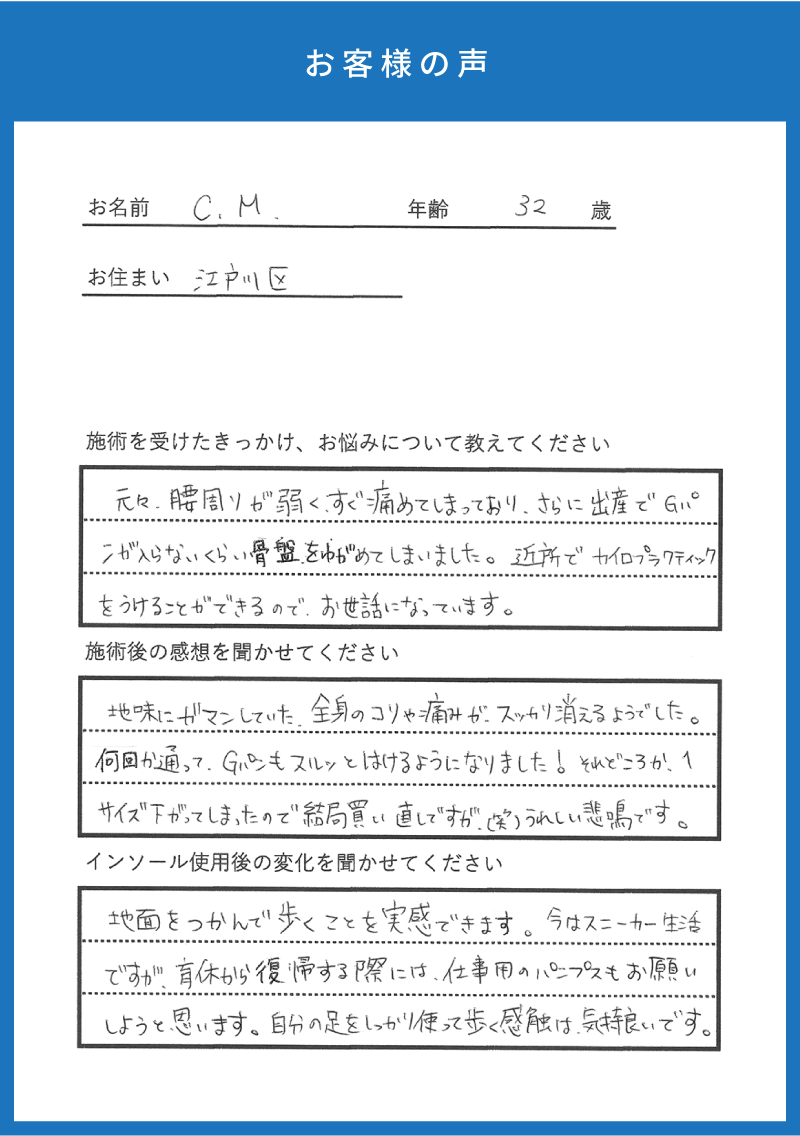 お客様の声
お名前 C.M. 年齢 32 歳
お住まい 江戸川区
施術を受けたきっかけ、お悩みについて教えてください
元々、腰周りが弱く、すぐ痛めてしまっており、さらに出産でGパ
ンが入らないくらい骨盤をゆがめてしまいました。近所でカイロプラクティック
をうけることができるので、お世話になっています。
施術後の感想を聞かせてください
地味にガマンしていた、全身のコリや痛みが、スッカリ消えるようでした。
何回か通って、Gパンもスルッとはけるようになりました!それどころか、1
サイズ下がってしまったので結局買い直しですが、(笑)うれしい悲鳴です。
インソール使用後の変化を聞かせてください
地面をつかんで歩くことを実感できます。今はスニーカー生活
ですが、育休から復帰する際には、仕事用のパンプスもお願い
しようと思います。自分の足をしっかり使って歩く感触は、気持良いです。